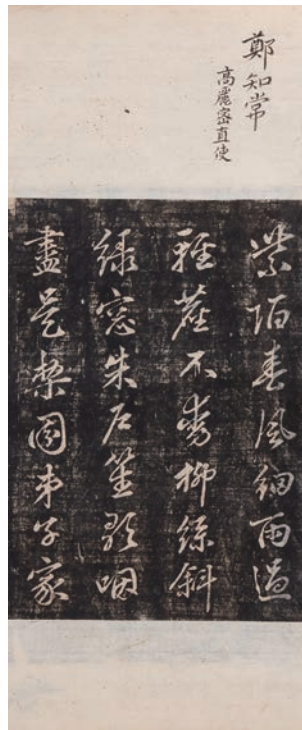 鄭知常
高麗密直使
紫陌春風細雨過
輕塵不動柳絲斜
綠窓朱戶笙歌咽
盡是梨園弟子家